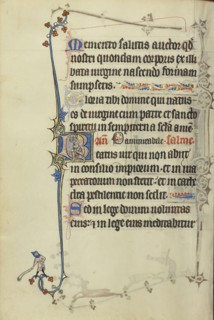 Memento salutis auctor qd
nostri quondam corporis ex illi
bata virgine nascendo formam
sumpseris.
Gloria tibi domine qui natus
es de virgine cum patre et sancto
spiritu in sempiterna secula amen
Beatus vir qui non abiit
in consilio impiorum et in via
peccatorum non stetit et in cathe
dra pestilencie non sedit
Sed in lege domini voluntas
eius et in lege eius meditabitur